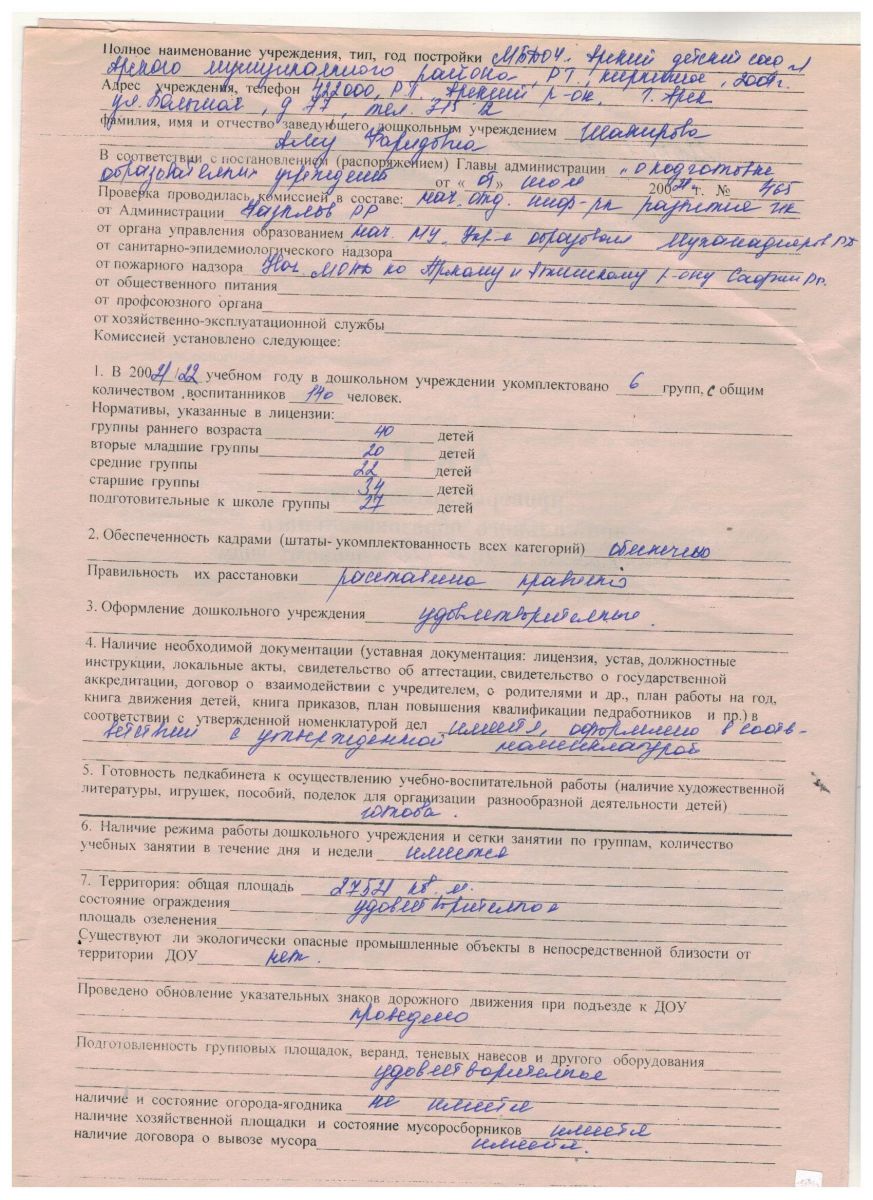 Полное наименование учреждения, тип, год постройки МБДОУ. Арский детский сад
Арского муниципального района, РТ, кирпичное, 2001г.
Адрес учреждения, телефон 422000, РТ, Арский р-он, г. Арск
ул. Большая, д 77, тел. 315 12
фамилия, имя и отчество заведующего дошкольным учреждением Шакирова
Алсу Фаридовна
В соответствии с постановлением (распоряжением) Главы администрации „О подготовке
образователь учреждений от « 01 » июля 200 г. № 465
Проверка проводилась комиссией в составе: нач. отд. инфр-ры развития
от Администрации РР
от органа управления образованием нач. МУ. Упр-е образован
от санитарно-эпидемиологического надзора
от пожарного надзора по Арскому и Атнинскому р-ону
от общественного питания
от профсоюзного органа
от хозяйственно-эксплуатационной службы
Комиссией установлено следующее:
1. В 20021/22 учебном году в дошкольном учреждении укомплектовано 6 групп, с общим
количеством воспитанников 140 человек.
Нормативы, указанные в лицензии:
группы раннего возраста 40 детей
вторые младшие группы 20 детей
средние группы 22 детей
старшие группы 34 детей
подготовительные к школе группы 27 детей
2. Обеспеченность кадрами (штаты- укомплектованность всех категорий) обеспечено
Правильность их расстановки расставлена правильно
3. Оформление дошкольного учреждения удовлетворительные.
4. Наличие необходимой документации (уставная документация: лицензия, устав, должностные
инструкции, локальные акты, свидетельство об аттестации, свидетельство о государственной
аккредитации, договор о взаимодействии с учредителем, с родителями и др., план работы на год,
книга движения детей, книга приказов, план повышения квалификации педработников и пр.) в
соответствии с утвержденной номенклатурой дел имеется, оформлено в соот-
ветствии с утвержденной номенклатурой
5. Готовность педкабинета к осуществлению учебно-воспитательной работы (наличие художественной
литературы, игрушек, пособий, поделок для организации разнообразной деятельности детей)
готова.
6. Наличие режима работы дошкольного учреждения и сетки занятии по группам, количество
учебных занятии в течение дня и недели имеется
7. Территория: общая площадь кв. м.
состояние ограждения удовлетворительно
площадь озеленения
Существуют ли экологически опасные промышленные объекты в непосредственной близости от
территории ДОУ нет.
Проведено обновление указательных знаков дорожного движения при подъезде к ДОУ
проведено
Подготовленность групповых площадок, веранд, теневых навесов и другого оборудования
удовлетворительное
наличие и состояние огорода-ягодника не имеется
наличие хозяйственной площадки и состояние мусоросборников имеется
наличие договора о вывозе мусора имеется.